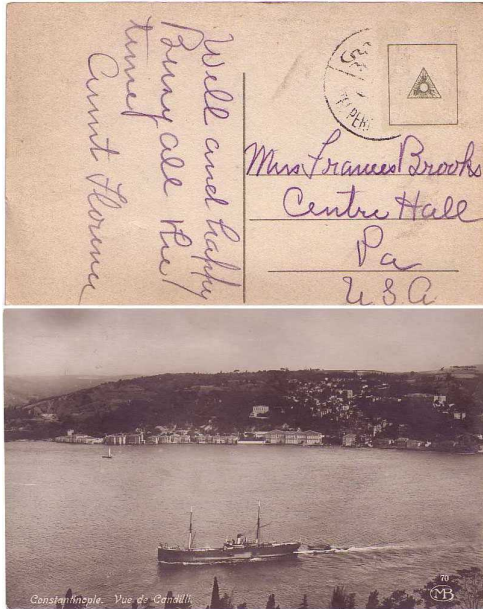 Well and happy
Busy all the
time
Aunt Florence
Mrs Frances Brooks
Centre Hall
Pa
U.S.A
Constantinople. Vue de Candilli.
70
MB